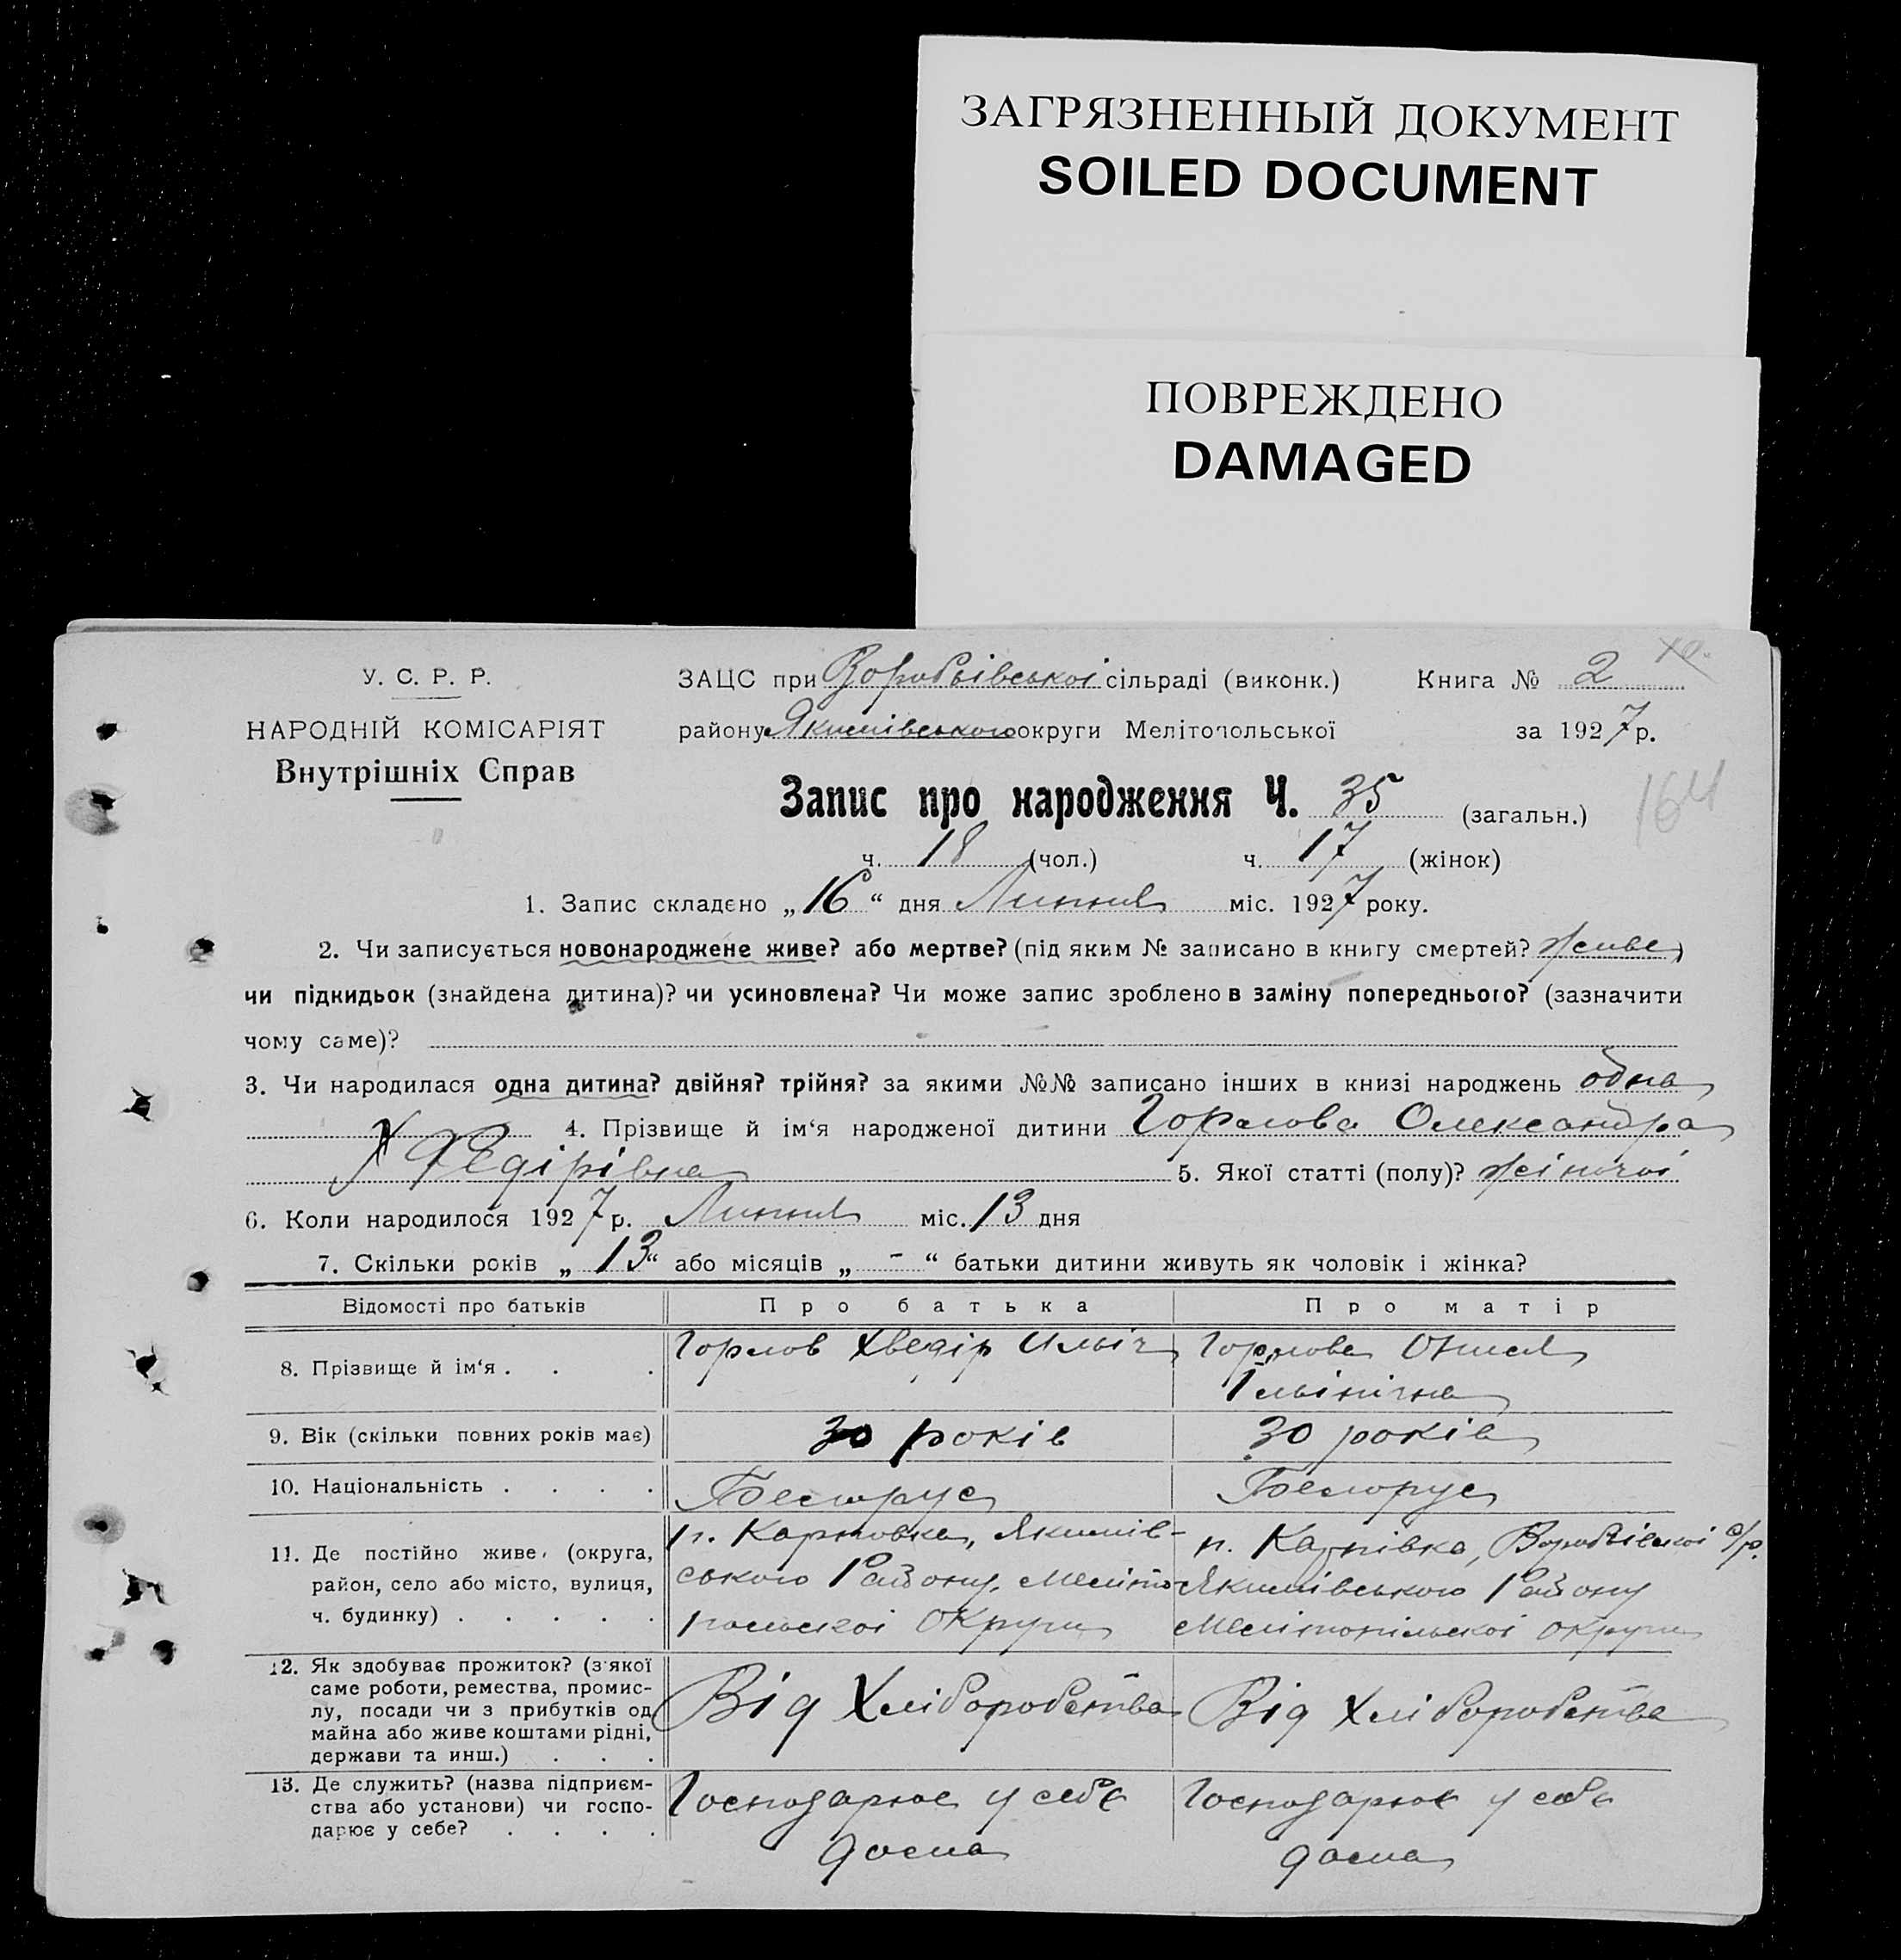 ЗАГРЯЗНЕННЫЙ ДОКУМЕНТ
SOILED DOCUMENT
ПОВРЕЖДЕНО
DAMAGED
У. С. Р. Р.
НАРОДНІЙ КОМІСАРІЯТ
Внутрішніх Справ
ЗАЦС при Воробьівськоі сільраді (виконк.) Книга № 2
району Якимівського округи Мелітопольської за 1927 р.
Запис про народження Ч. 35 (загальн.)
164
ч. 18 (чол.) ч. 17 (жінок)
1. Запис складено „16“ дня Липня міс. 1927 року.
2. Чи записується новонароджене живе? або мертве? (під яким № записано в книгу смертей? живе
чи підкидьок (знайдена дитина)? чи усиновлена? Чи може запис зроблено в заміну попереднього? (зазначити
чому саме)?
3. Чи народилася одна дитина? двійня? трійня? за якими №№ записано інших в книзі народжень одна
4. Прізвище й ім‘я народженої дитини Горлова Олександра
Федірівна 5. Якої статті (полу)? жіночоі
6. Коли народилося 1927 р. Липня міс. 13 дня
7. Скільки років „13“ або місяців „-“ батьки дитини живуть як чоловік і жінка?
Відомості про батьків Про батька Про матір
8. Прізвище й ім‘я . . . Горлов Хведір Ильіч Горлова
Ільінічна
9. Вік (скільки повних років має) 30 років 30 років
10. Національність . . . . Белорус Белорус
11. Де постійно живе, (округа, п. Карповка, Якимів- п. Карпівка, Воробьівськоі с/р.
район, село або місто, вулиця, ського Району, Меліто Якимівського Району
ч. будинку) . . . . . польскоі Округи Мелітопільскоі округи
12. Як здобуває прожиток? (з якої
саме роботи, ремества, промис-
лу, посади чи з прибутків од Від Хліборобства Від Хліборобства
майна або живе коштами рідні,
держави та инш.) . . .
13. Де служить? (назва підприєм- Господарює у себе Господарює у себе
ства або установи) чи госпо-
дарює у себе? . . . . дома дома